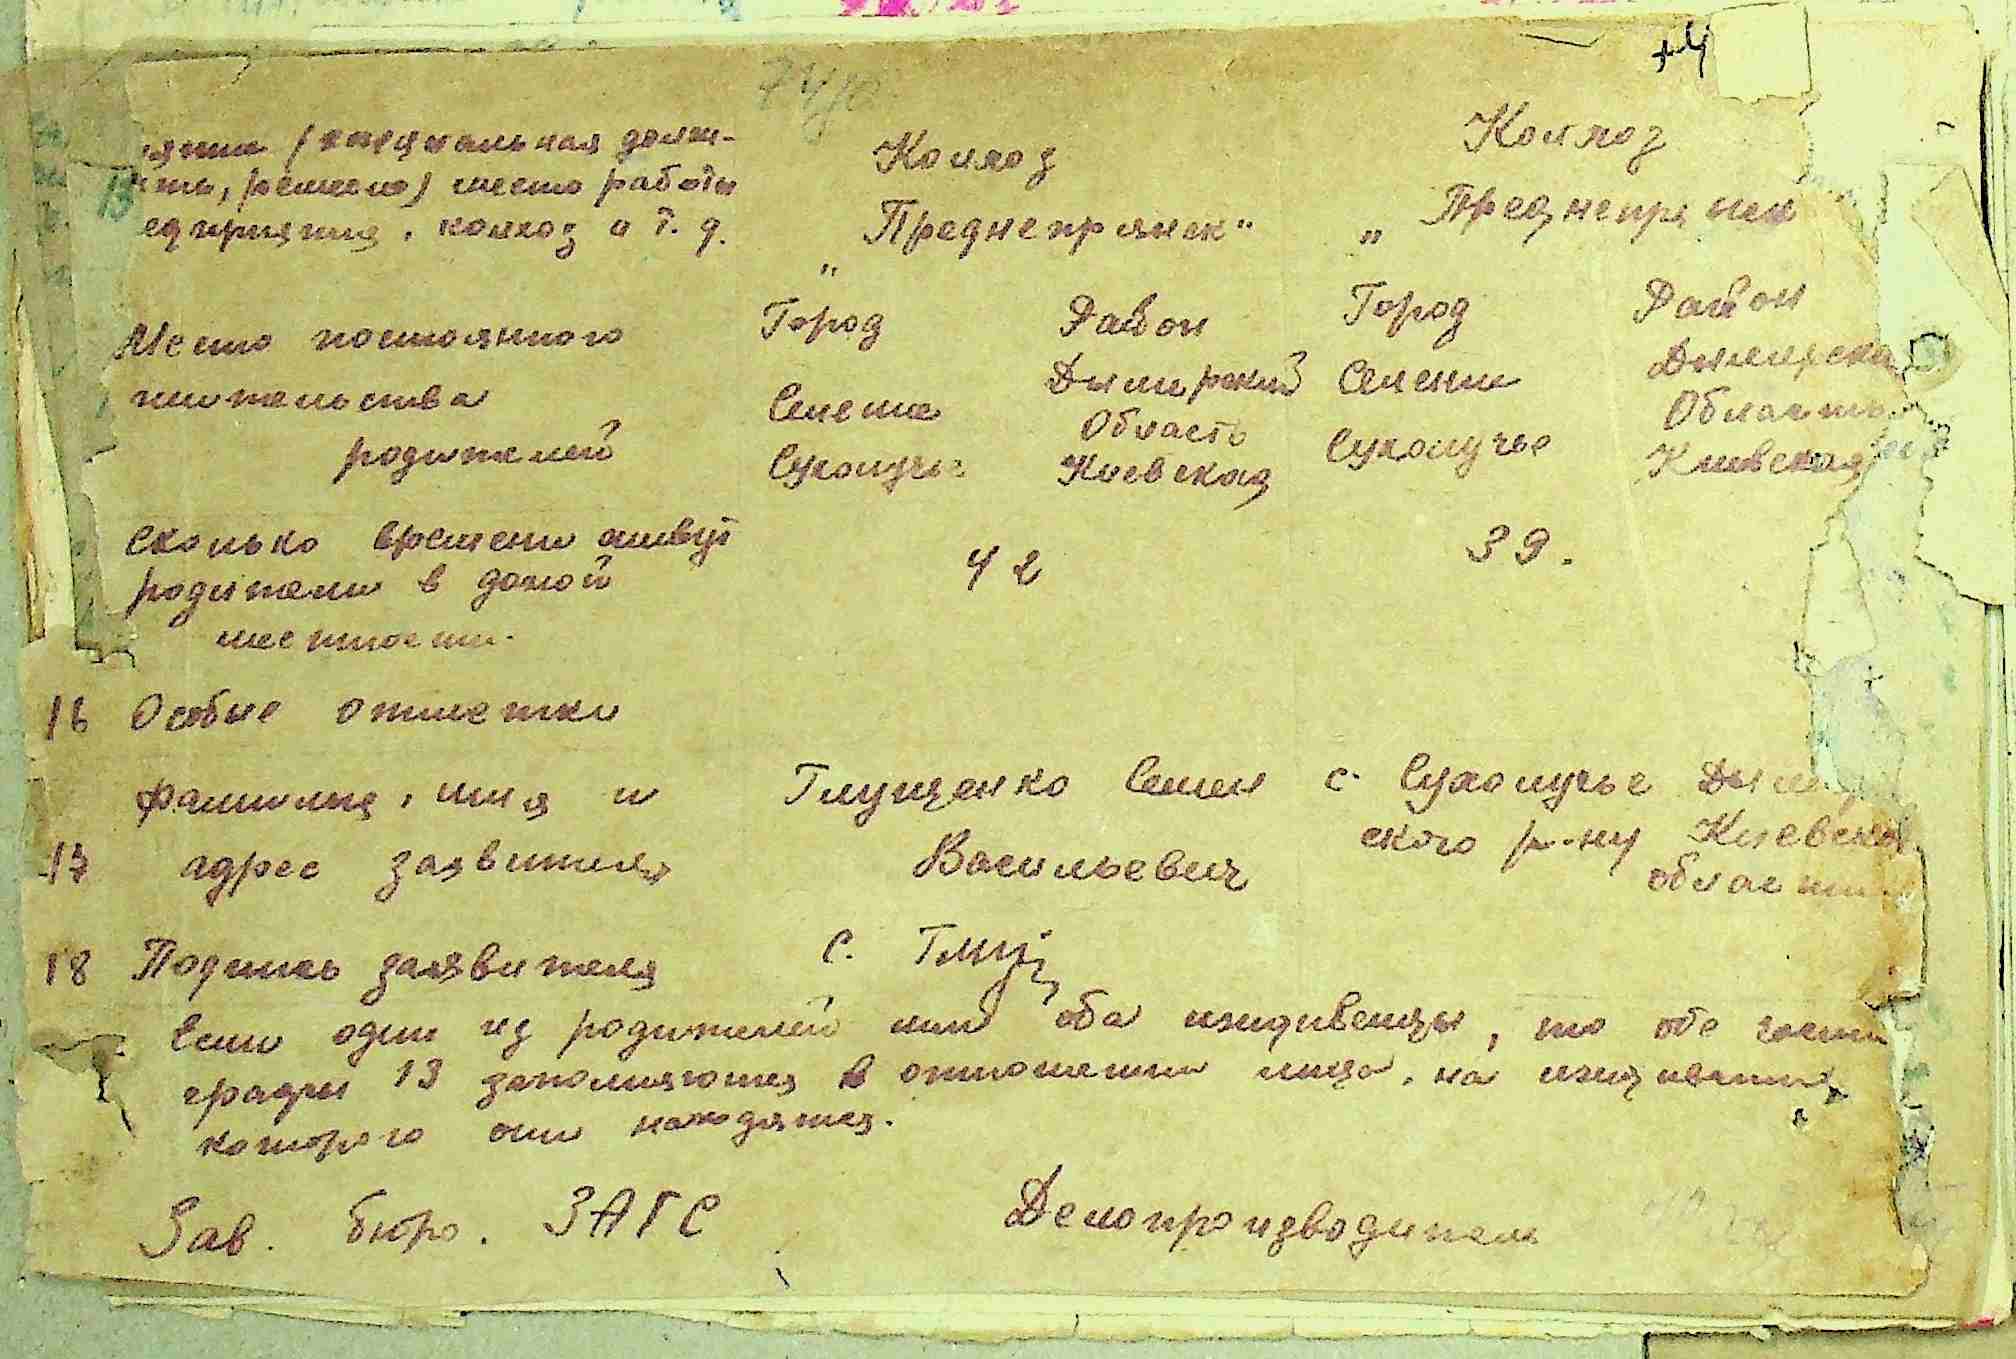 74
+4
Колхоз Колхоз
ятия (специальная долж-
сть, ремесло) место работы
едприятия, колхоз и т. д.
„Преднепрянск" „Преднепрянск
13
Город Район Город Район
Место постоянного
жительства
родителей
Дымирский Дымирска
Селение Селение
Область Область
Сухолучье Киевская Сухолучье Киевская
Сколько времени живут
родители в даной
местности.
42 39.
16 Особые отметки
Фамилия, имя и Глущенко Семен с. Сухолучье Дымер
17 адрес заявителя Васильевич ского р-ну Киевской
области
18 Подпись заявителя С. Глущ
Если один из родителей или оба иждивенцы, то обе части
графы 13 заполняются в отношении лица, на иждивении
которого они находятся.
Зав. бюро. ЗАГС Делопроизводитель